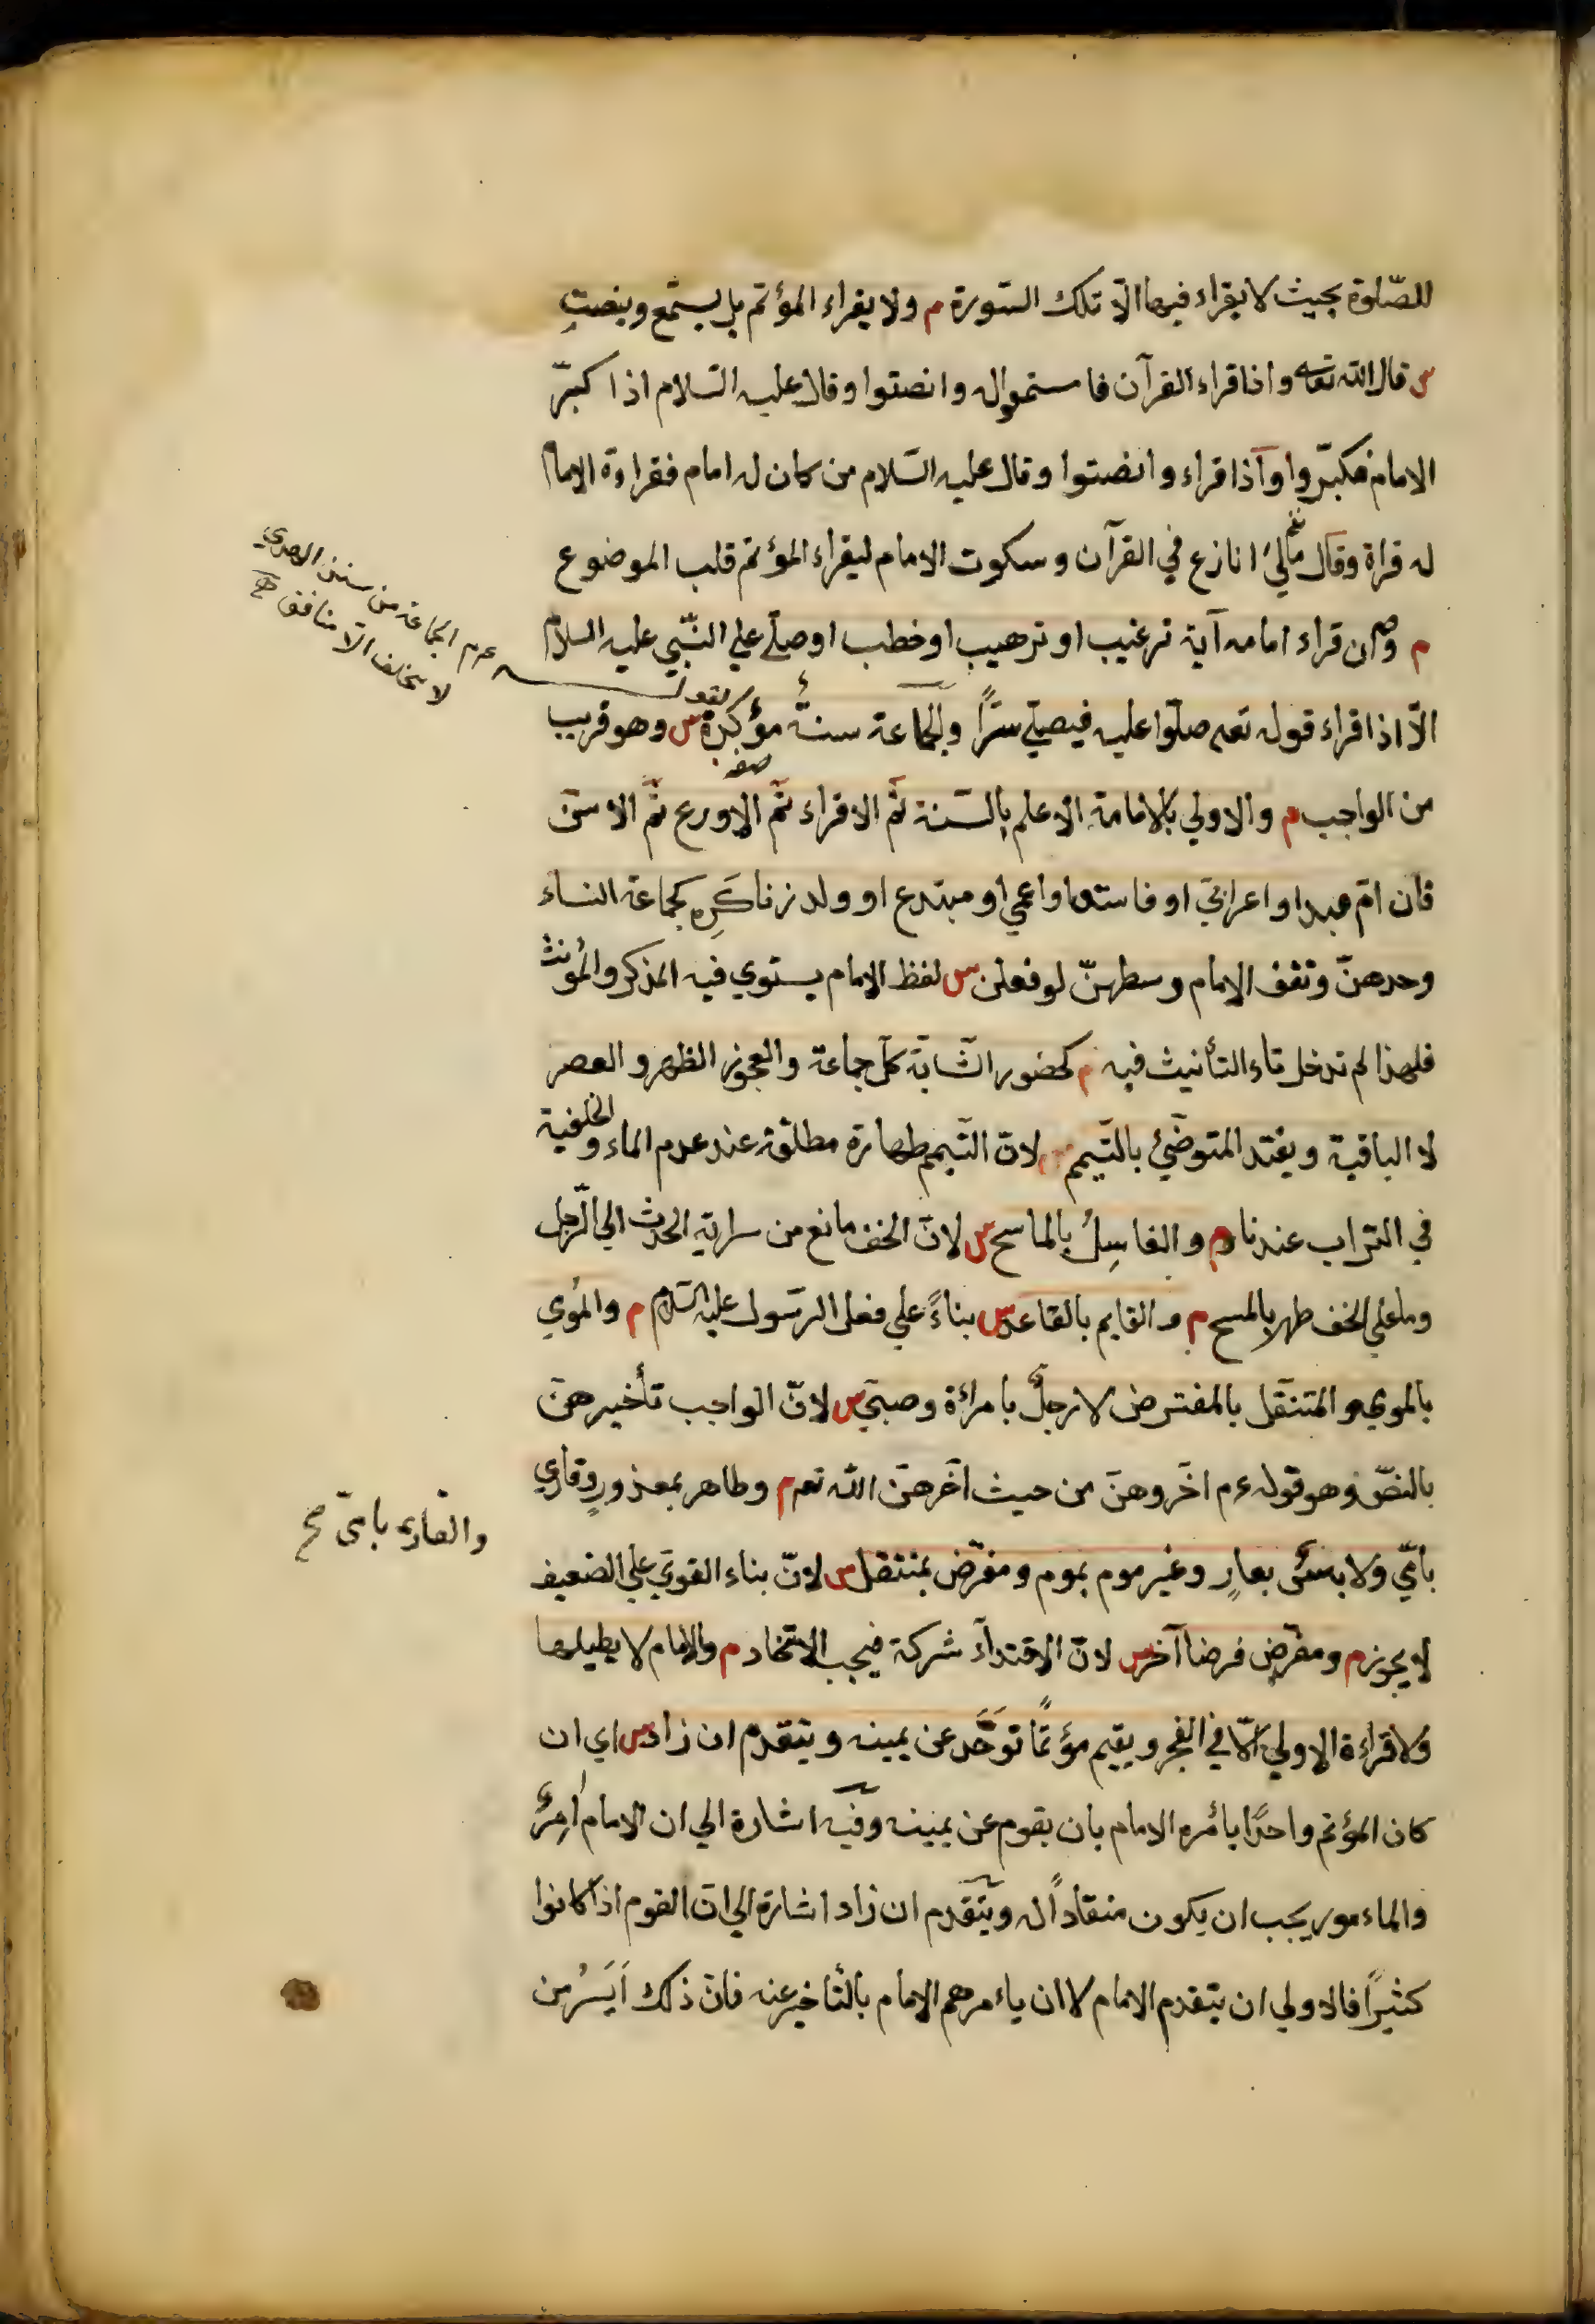 للصّلوة بحيث لا يقراء فيها الّا تلك السّورة م ولا يقراء المؤتم بل يستمع وينصتِ
س قال الله تعه واذا قراء القرآن فاستمعوا له وانصتوا وقال عليه السّلام اذا كبّر
الامام فكبّروا واذا قراء وانصتوا وقال عليه السّلام من كان له امام فقراءة الامام
له قراة وقال مالي انازع في القرآن وسكوت الامام ليقراء المؤتم قلب الموضوع
م وان قراء امامه آية ترغيب او ترهيب او خطب او صلّي علي النّبي عليه السلام
الّا اذا قراء قوله تعه صلّوا عليه فيصلّي سرًّا والجماعة سنةٌ مؤكدة س وهو قريب
لقوله عم الجماعة من سنن الهدي
لا يتخلف الّا منافق صح
من الواجب م والاولي بالامامة الاعلم بالسّنة ثمّ الاقراء ثمّ الاورع ثمّ الاسنّ
فان امّ عبدا او اعرابيّ او فاسق او اعمي او مبتدع او ولد زنا كَرِه كجماعة النساء
وحدهنّ وتقف الامام وسطهنّ لو فعلن س لفظ الامام يستوي فيه المذكر والمؤنث
فلهذا لم تدخل تاء التأنيث فيه م كحضور الشّابّة كلّ جماعة والعجوز الظهر والعصر
لا الباقية ويقتد المتوضّئ بالتّيمم س لانّ التّيمم طهارة مطلقة عند عدم الماء والخلفية
في التراب عندنا م والغاسِلُ بالماسح س لانّ الخف مانع من سراية الحدث الي الرّجل
وما علي الخف طهر بالمسح م والقايم بالقاعد س بناءً علي فعل الرسّول عليه السّلام م والمؤي
بالموي والمتنفّل بالمفترض لا رجلٌ بامراءة وصبيّ س لانّ الواجب تأخيرهنّ
بالنصّ وهو قوله عم اخّروهنّ من حيث اخّرهنّ الله تعه م وطاهر بمعذورٍ وقاري
والقاري بامّي صح
بامّي ولابس بعارٍ وغير موم بموم ومفترض بمتنفل س لانّ بناء القويّ علي الضعيف
لا يجوز م ومفترض فرضا آخر س لانّ الاقتداء شركة فيجب الاتحاد م والامام لا يطيلها
ولا قراءة الاولي الّا في الفجر ويقيم مؤتمًّا توحّد عن يمينه ويتقدم ان زاد س اي ان
كان المؤتم واحدًا يأمره الامام بان يقوم عن يمينه وفيه اشارة الي ان الامام امِرٌ
والماءمور يجب ان يكون منقادًا له ويتقدم ان زاد اشارة الي انّ القوم اذا كانوا
كثيرًا فالاولي ان يتقدم الامام لا ان ياءمرهم الامام بالتّاخير عنه فانّ ذلك اَيسَرُ من